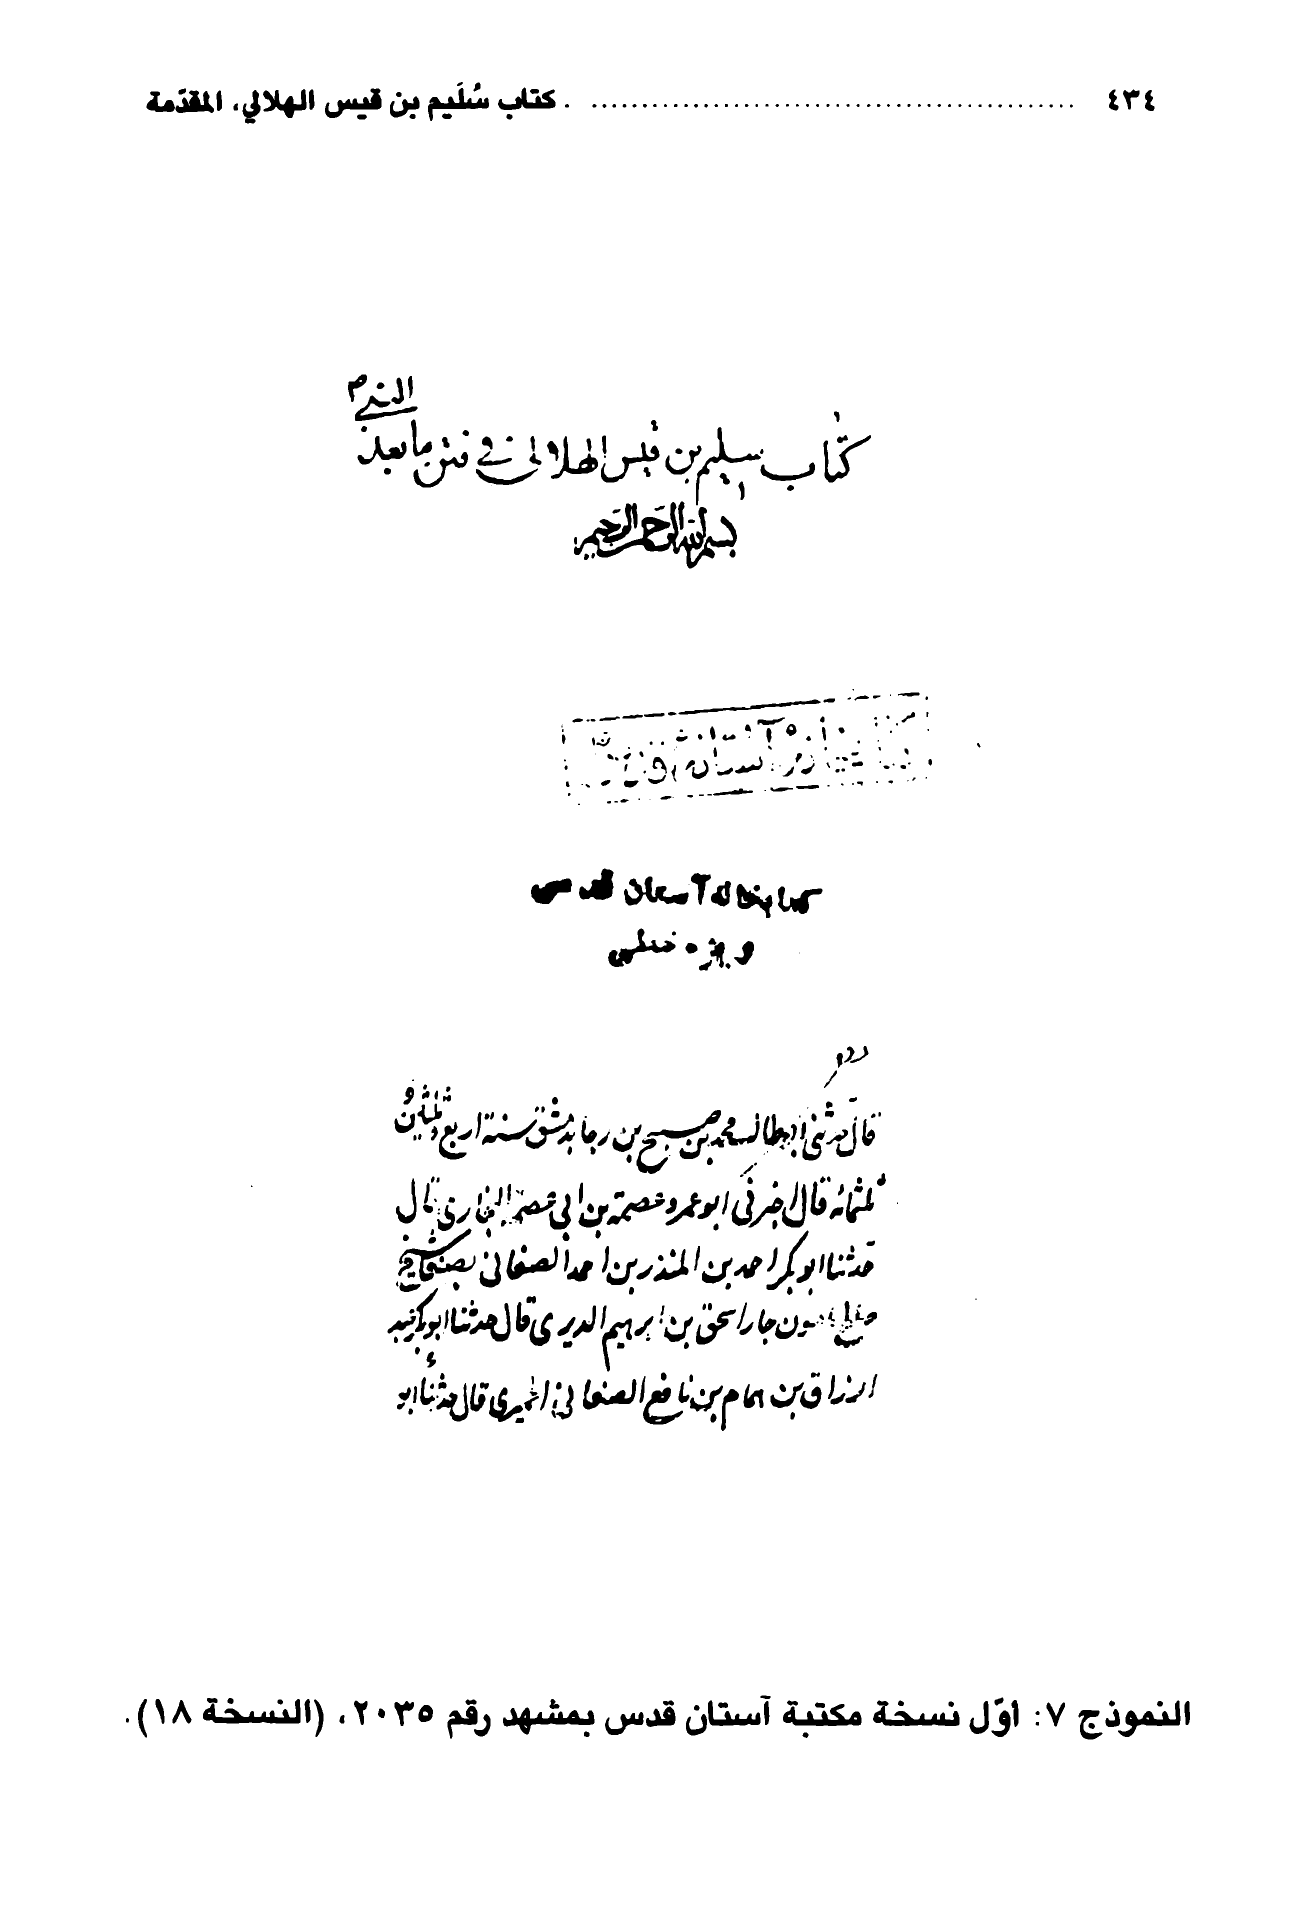 ٤٣٤ ........ كتاب سُلَيم بن قيس الهلالي، المقدّمة
النبي ص
كتاب سليم بن قيس الهلالى فى فتن ما بعد
بسم الله الرحمن الرحيم
كتابخانه آستان قدس
كتابخانه آستان قدس
ويژه خطى
قال حدثنى ابو طالب محمد بن صبيح بن رجا بدمشق سنة اربع وثلثين و
ثلثمائه قال اخبرنى ابو عمرو عصمة بن ابى عصمة البخارى قال
حدثنا ابو بكر احمد بن المنذر بن احمد الصنعانى بصنعا شيخ
صالح مامون جار اسحق بن ابرهيم الديرى قال حدثنا ابو بكر عبد
الرزاق بن همام بن نافع الصنعانى الحميرى قال حدثنا ابو
النموذج ٧: اوّل نسخة مكتبة آستان قدس بمشهد رقم ٢٠٣٥، (النسخة ١٨).